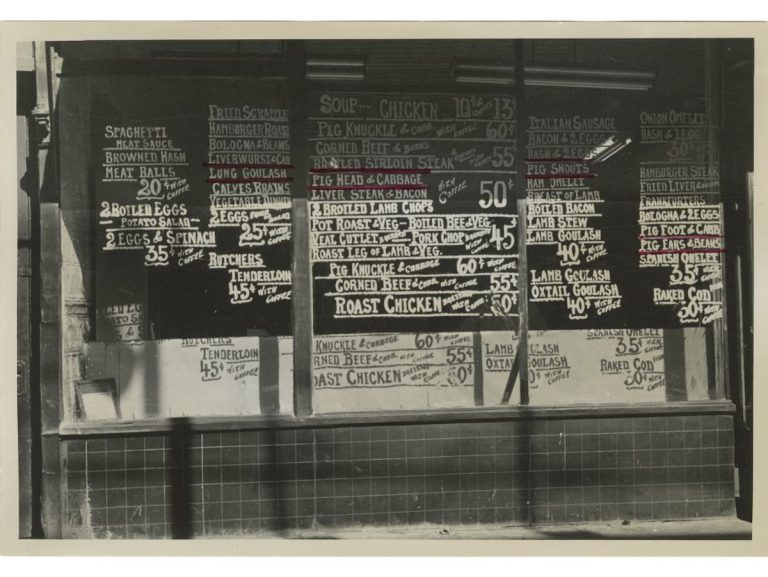 SPAGHETTI
MEAT SAUCE
BROWNED HASH
MEAT BALLS
20¢ WITH COFFEE
2 BOILED EGGS
POTATO SALAD
2 EGGS & SPINACH
35¢ WITH COFFEE
FRIED SCRAPPLE
HAMBURGER ROAST
BOLOGNA & BEANS
LIVERWURST & CAB
LUNG GOULASH
CALVES BRAINS
VEGETABLE DINNER
2 EGGS
25¢ WITH COFFEE
BUTCHERS
TENDERLOIN
45¢ WITH COFFEE
SOUP -- CHICKEN 10¢ 13¢
PIG KNUCKLE & CABB. WITH COFFEE 60¢
CORNED BEEF & BEANS
BROILED SIRLOIN STEAK 55
PIG HEAD & CABBAGE
LIVER STEAK & BACON
WITH COFFEE 50¢
2 BROILED LAMB CHOPS
POT ROAST & VEG-- BOILED BEEF & VEG.
VEAL CUTLET PORK CHOP
ROAST LEG OF LAMB & VEG.
45 WITH COFFEE
PIG KNUCKLE & CABBAGE 60¢ WITH COFFEE
CORNED BEEF & CABB. WITH COFFEE 55¢
ROAST CHICKEN DRESSING WITH COFFEE 50¢
ITALIAN SAUSAGE
BACON & 2 EGGS
HASH & 2 EGGS
PIG SNOUTS
HAM OMELET
BREAST OF LAMB
BOILED BACON
LAMB STEW
LAMB GOULASH
40¢ WITH COFFEE
LAMB GOULASH
OXTAIL GOULASH
40¢ WITH COFFEE
ONION OMELET
HASH & 1 EGG
30¢
HAMBURGER STEAK
FRIED LIVER & ONIONS
FRANKFURTERS
BOLOGNA & 2 EGGS
PIG FOOT & CABB
PIG EARS & BEANS
SPANISH OMELET
35¢ WITH COFFEE
BAKED COD
30¢ WITH COFFEE
ED EGGS
TO SALAD
BUTCHERS
TENDERLOIN
45¢ WITH COFFEE
KNUCKLE & CABBAGE 60¢ WITH COFFEE
RNED BEEF & CABB. WITH COFFEE 55¢
OAST CHICKEN DRESSING WITH COFFEE 50¢
LAMB GOULASH
OXTAIL GOULASH
0¢ WITH COFFEE
SPANISH OMELET
35¢ WITH COFFEE
BAKED COD
30¢ WITH COFFEE